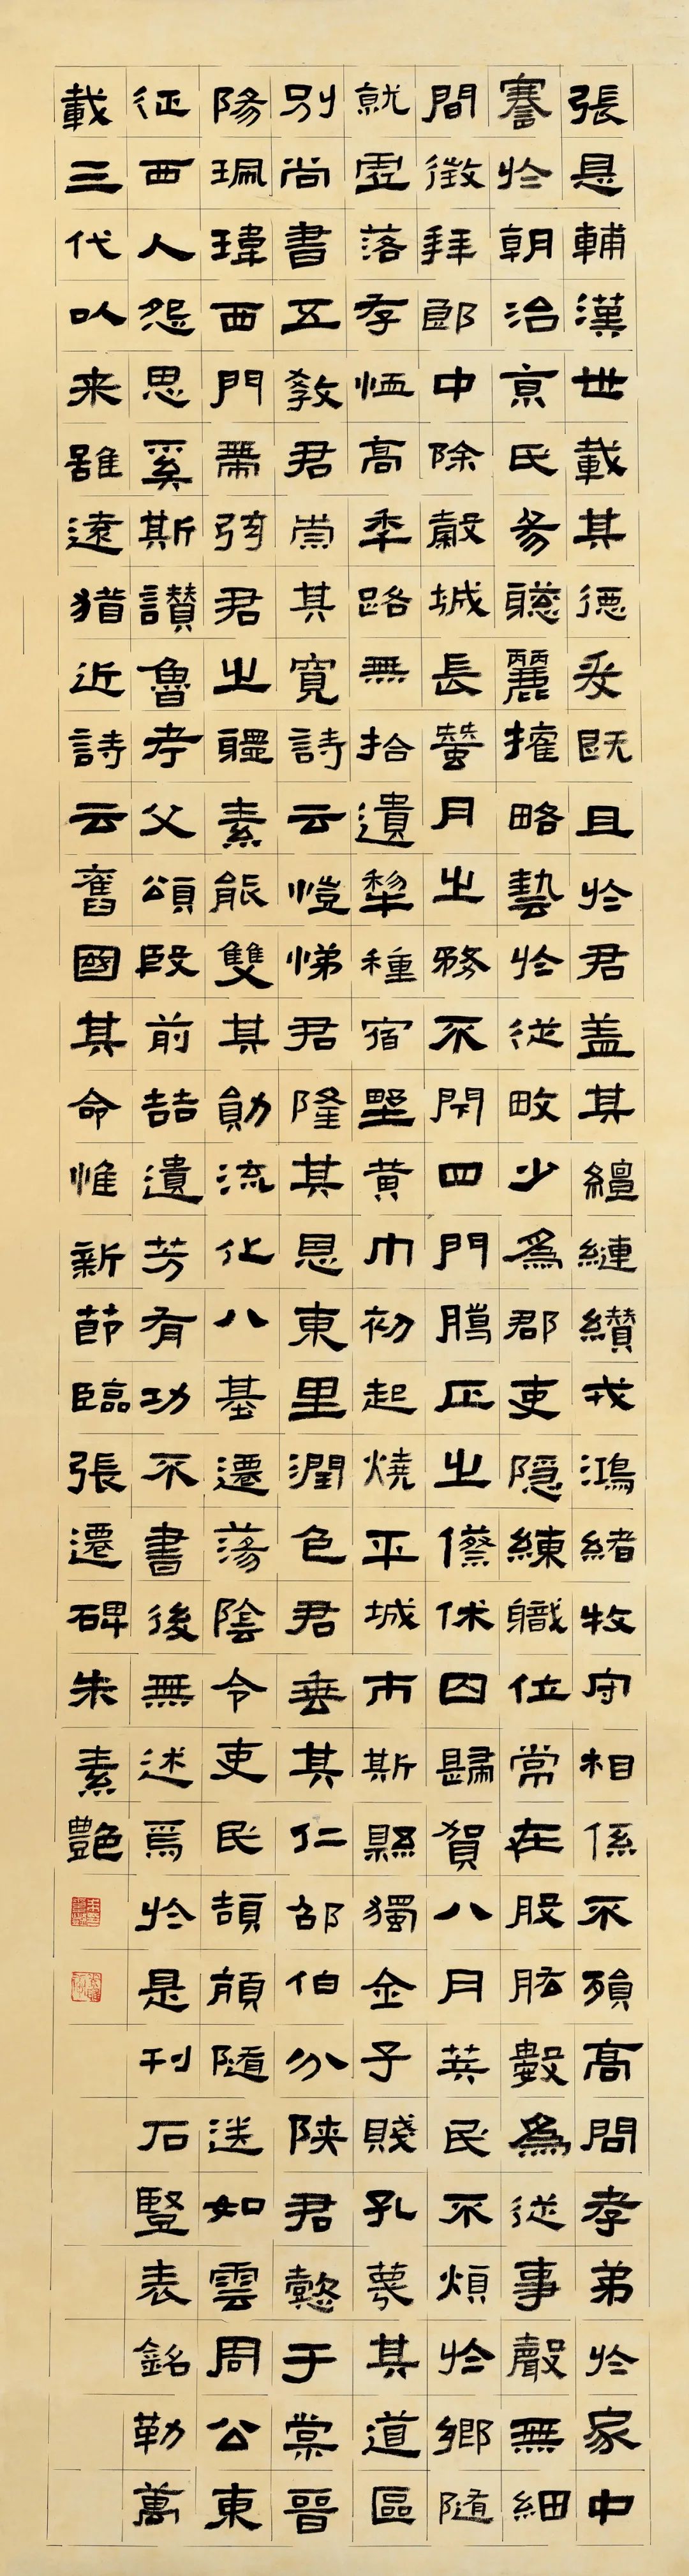 張是輔漢世載其德爰既且於君盖其繵縺纘戎鴻緒牧守相係不殞高問孝弟於家中
謇於朝治京氏易聰麗權略藝於從畋少為郡吏隱練職位常在股肱數為從事聲無細
聞徵拜郎中除穀城長蠶月之務不閉四門腊正之僚休囚歸賀八月筭民不煩於鄉隨
就虛落存恤高年路無拾遺犁種宿野黃巾初起燒平城市斯縣獨全子賤孔蔑其道區
別尚書五教君崇其寬詩云愷悌君隆其恩東里潤色君垂其仁邵伯分陝君懿于棠晉
陽珮瑋西門帶弦君之體素能雙其勛流化八基遷蕩陰令吏民頡頏隨送如雲周公東
征西人怨思奚斯讚魯考父頌殷前喆遺芳有功不書後無述焉於是刊石豎表銘勒萬
載三代以來雖遠猶近詩云舊國其命惟新節臨張遷碑朱素艷